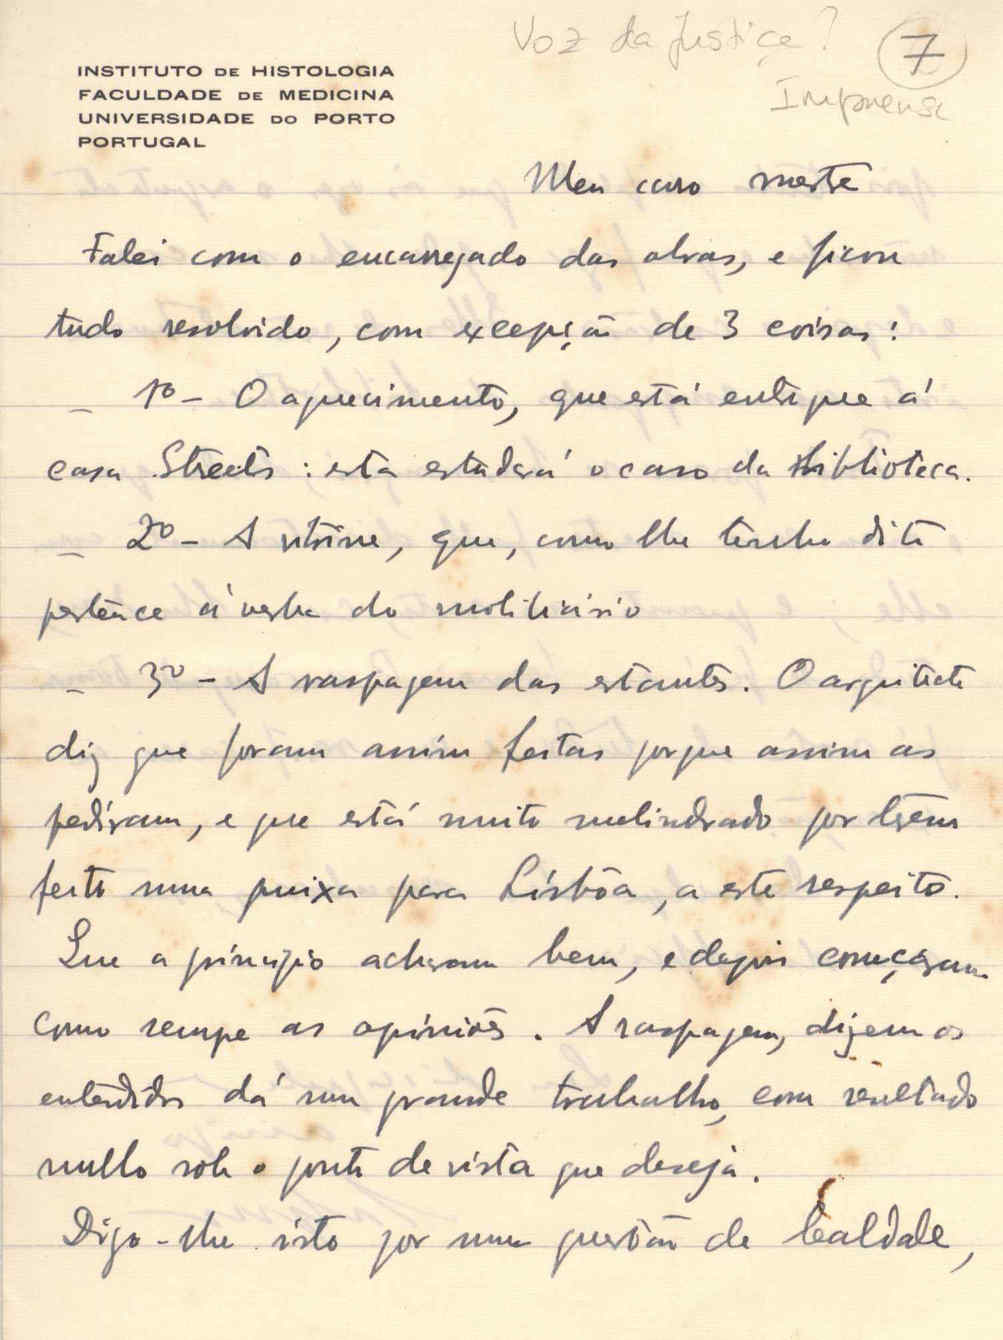 Voz da Justiça?
7
Imprensa
INSTITUTO DE HISTOLOGIA
FACULDADE DE MEDICINA
UNIVERSIDADE DO PORTO
PORTUGAL
Meu caro mestre
Falei com o encarregado das obras, e ficou
tudo resolvido, com excepção de 3 coisas:
– 1º – O aquecimento, que está entregue á
casa Streets: esta estudará o caso da biblioteca.
– 2º – A vitrine, que, como lhe tenho dito
pertence á verba do mobiliário
– 3º – A raspagem das estantes. O arquitecto
diz que foram assim feitas porque assim as
pediram, e que está muito melindrado por terem
feito uma queixa para Lisbôa, a este respeito.
Que a principio acharam bem, e depois começaram
como sempre as opiniões. A raspagem, dizem os
entendidos dá um grande trabalho, com resultado
nullo sob o ponto de vista que deseja.
Digo-lhe isto por uma questão de lealdade,